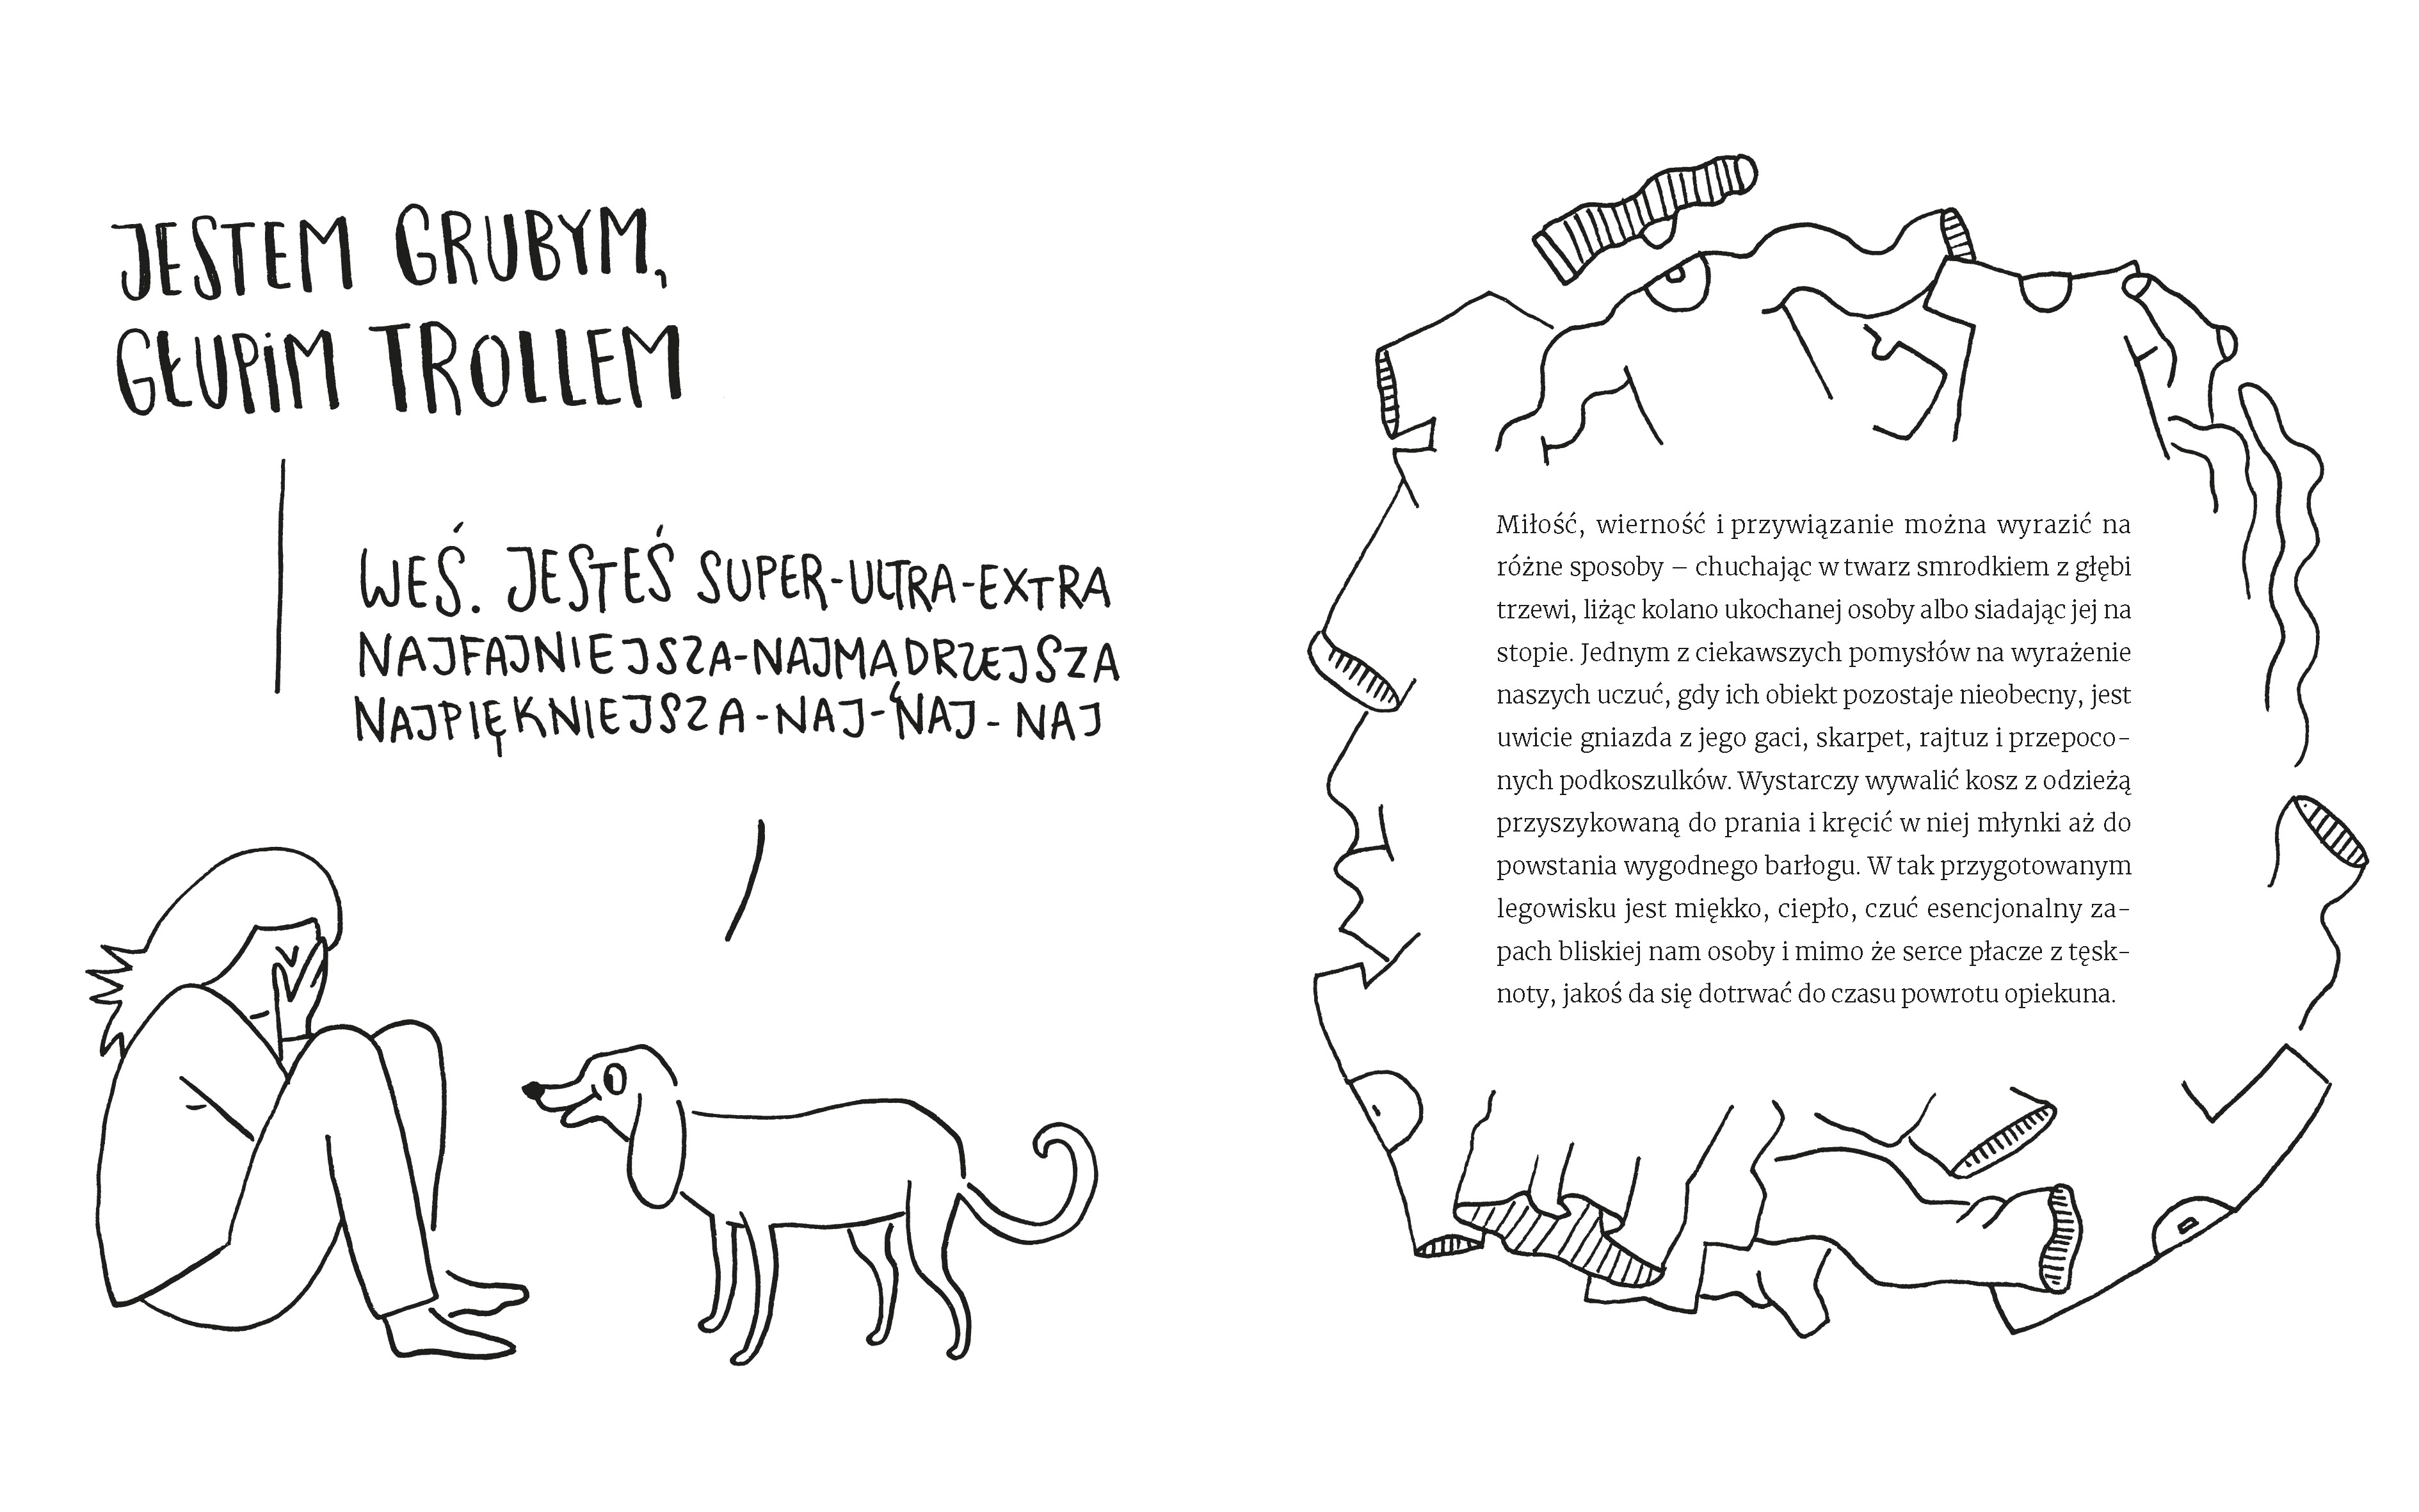 JESTEM GRUBYM,
GŁUPIM TROLLEM
WEŚ. JESTEŚ SUPER-ULTRA-EXTRA
NAJFAJNIEJSZA-NAJMĄDRZEJSZA
NAJPIĘKNIEJSZA-NAJ-NAJ-NAJ
Miłość, wierność i przywiązanie można wyrazić na
różne sposoby – chuchając w twarz smrodkiem z głębi
trzewi, liżąc kolano ukochanej osoby albo siadając jej na
stopie. Jednym z ciekawszych pomysłów na wyrażenie
naszych uczuć, gdy ich obiekt pozostaje nieobecny, jest
uwicie gniazda z jego gaci, skarpet, rajtuz i przepoco-
nych podkoszulków. Wystarczy wywalić kosz z odzieżą
przyszykowaną do prania i kręcić w niej młynki aż do
powstania wygodnego barłogu. W tak przygotowanym
legowisku jest miękko, ciepło, czuć esencjonalny za-
pach bliskiej nam osoby i mimo że serce płacze z tęsk-
noty, jakoś da się dotrwać do czasu powrotu opiekuna.